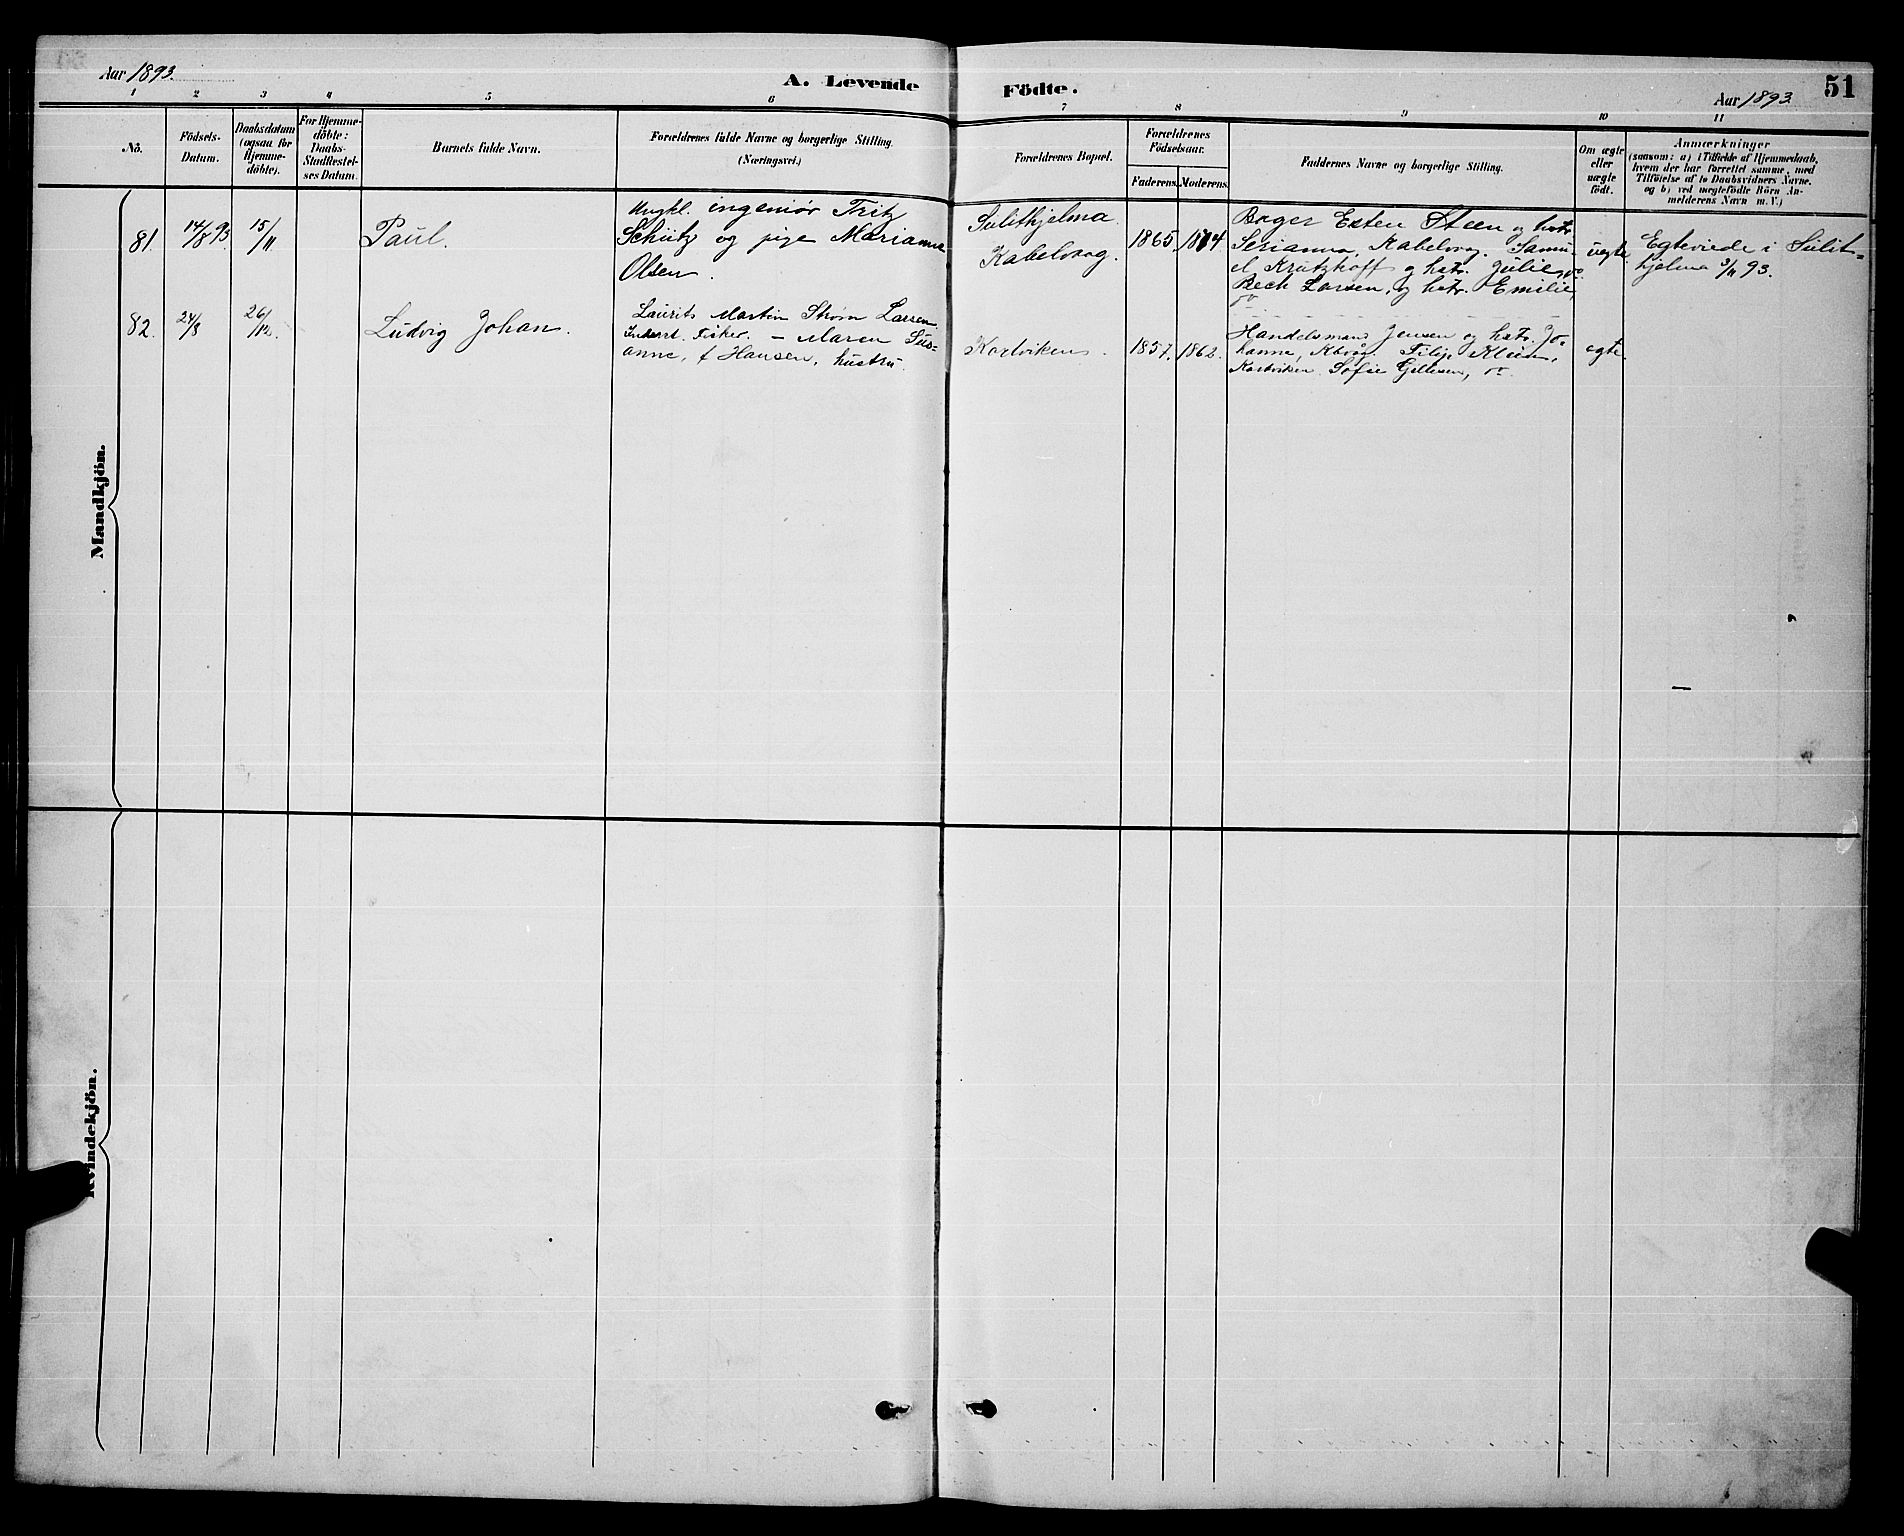 Aar 1893.
A. Levende Födte.
Aar 1893.
51
1 2 3 4 5 6 7 8 9 10 11
No.
Födsels-
Datum.
Daabsdatum
(ogsaa for
Hjemme-
döbte).
For Hjemme-
döbte:
Daabs-
Stadfæstel-
ses Datum.
Barnets fulde Navn.
Forældrenes fulde Navne og borgerlige Stilling.
(Næringsvei.)
Forældrenes Bopæl.
Forældrenes
Födselsaar.
Faderens. Moderens.
Faddernes Navne og borgerlige Stilling.
Om ægte
eller
uægte
födt.
Anmærkninger
(saasom: a) i Tilfælde af Hjemmedaab,
hvem der har forrettet samme, med
Tilföielse af to Daabsvidners Navne.
og b) ved uægtefödte Börn An-
melderens Navn m. V.)
Mandkjön.
81.
14/8 93.
15/11
Paul.
Ungkl. ingeniør Fritz
Schütz og pige Marianne
Olsen.
Sulithjelma.
Kabelvaag.
1865.
1874.
Bager Esten Steen og hstr.
Serianna, Kabelvog. Samu-
el Krutzkoff og hstr. Julie, do
Bech Larsen, og hstr. Emilie,
do
uegte.
Egteviede i Sulit-
hjelma 3/11 93.
82.
24/8
26/12.
Ludvig Johan.
Laurits Martin Strøm Larsen
Inderst. Fisker. – Maren Sus-
anne, f. Hansen, hustru.
Kortviken.
1857.
1862.
Handelsmand Jensen og hstr. Jo-
hanna, Kbvåg. Filip Klein,
Kortviken. Sofie Gellesen, do
egte.
Kvindekjön.